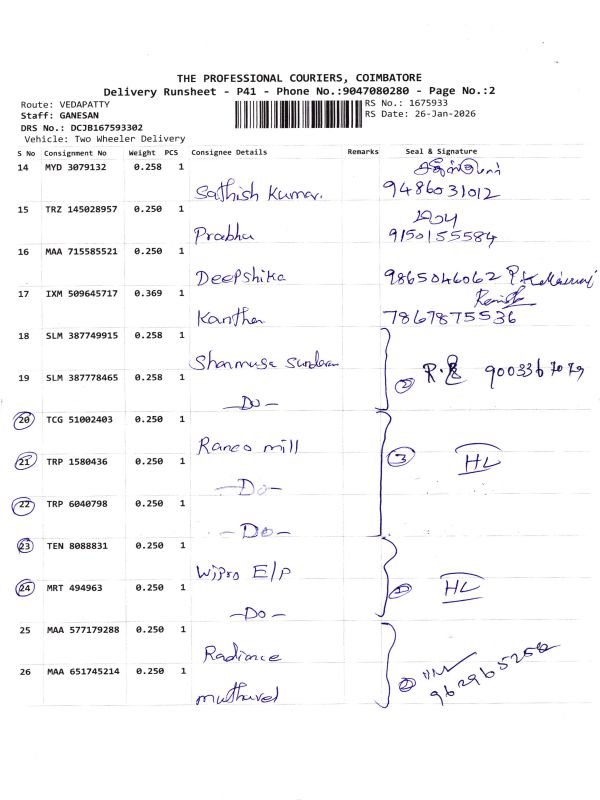 THE PROFESSIONAL COURIERS, COIMBATORE
Delivery Runsheet - P41 - Phone No.:9047080280 - Page No.:2
Route: VEDAPATTY
Staff: GANESAN
DRS No.: DCJB167593302
Vehicle: Two Wheeler Delivery
RS No.: 1675933
RS Date: 26-Jan-2026
S No Consignment No Weight PCS Consignee Details Remarks Seal & Signature
14 MYD 3079132 0.258 1
Sathish Kumar. 9486031012
15 TRZ 145028957 0.250 1
Prabhu 9150155584
16 MAA 715585521 0.250 1
Deepshika 9865046062
17 IXM 509645717 0.369 1
Kanthan 7867875536
18 SLM 387749915 0.258 1
Shanmuga Sundaram
19 SLM 387778465 0.258 1
—Do— 2 9003367079
20 TCG 51002403 0.250 1
Ranco mill
21 TRP 1580436 0.250 1 3 HL
—Do—
22 TRP 6040798 0.250 1
—Do—
23 TEN 8088831 0.250 1
Wipro E/P
24 MRT 494963 0.250 1 HL
—Do—
25 MAA 577179288 0.250 1
Radiance
26 MAA 651745214 0.250 1 2
muthuvel